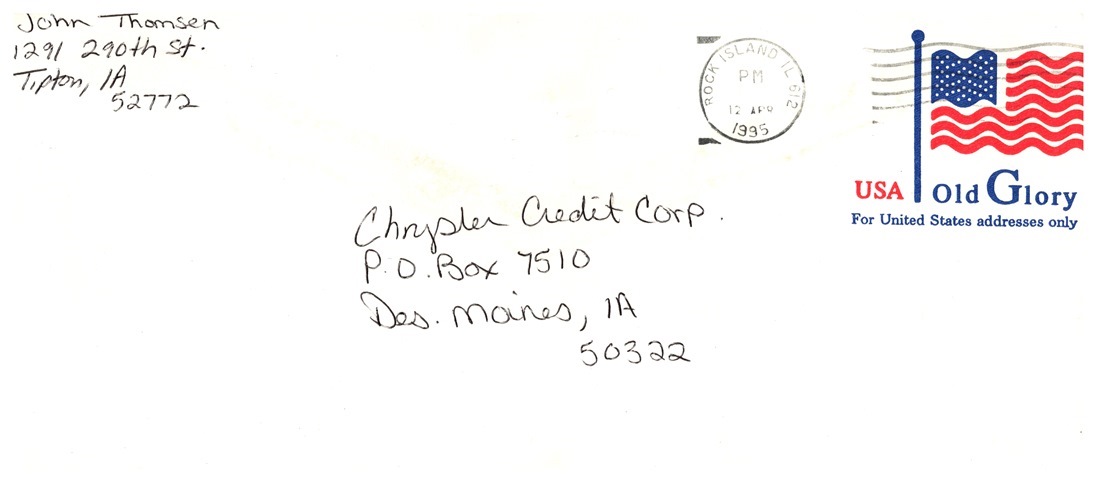 John Thomsen
1291 290th St.
Tipton, IA
52772
ROCK ISLAND IL 612
PM
12 APR
1995
USA Old Glory
For United States addresses only
Chrysler Credit Corp.
P.O. Box 7510
Des. Moines, IA
50322